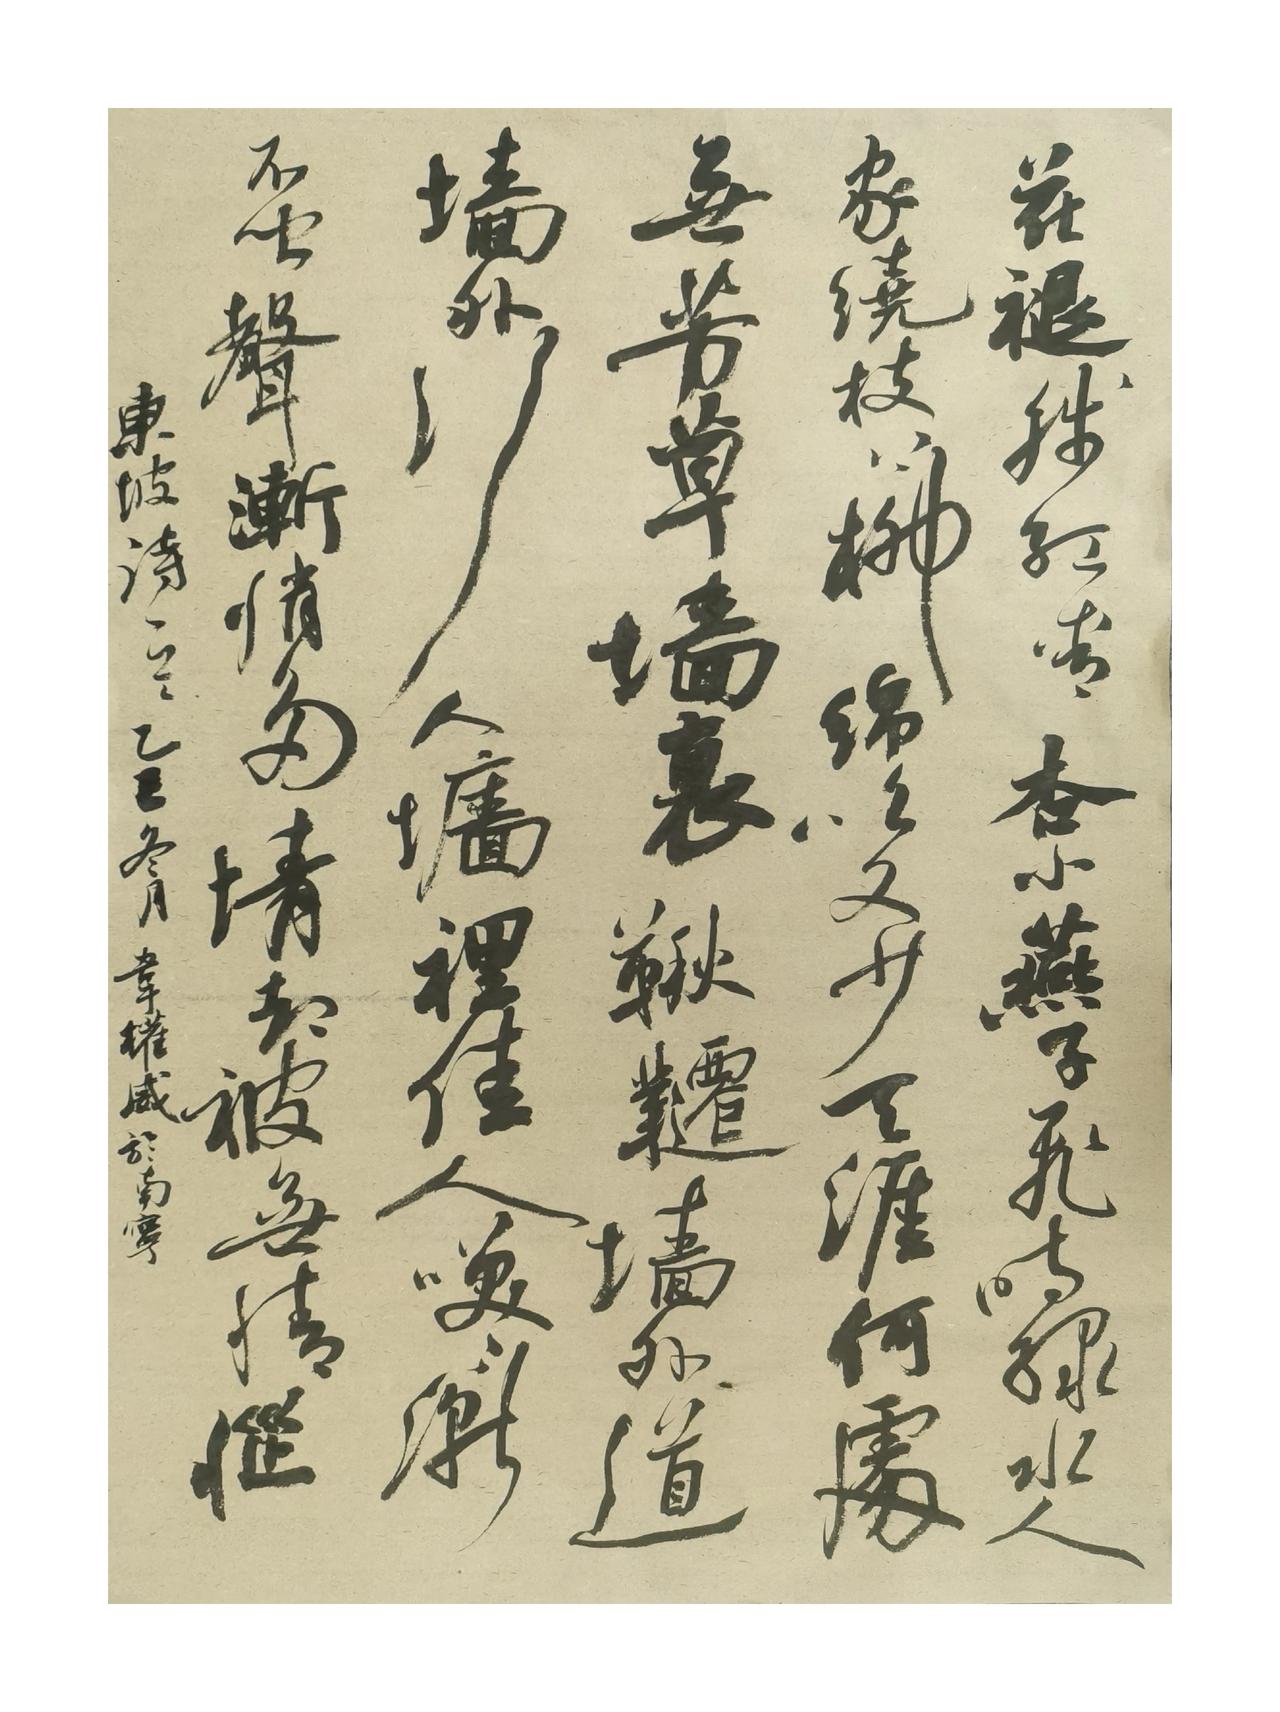 花褪殘紅青杏小燕子飛時綠水人
家繞枝上柳綿吹又少天涯何處
無芳草墙裏鞦韆墙外道
墙外行人墻裡佳人咲〻漸
不聞聲漸悄多情却被無情惱
東坡詩一首乙巳冬月韋權威於南寧